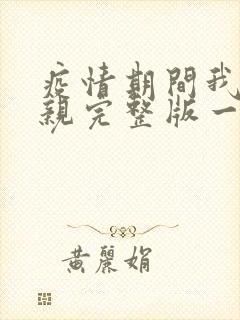 疫情期間我
親完整版一
黃麗娟